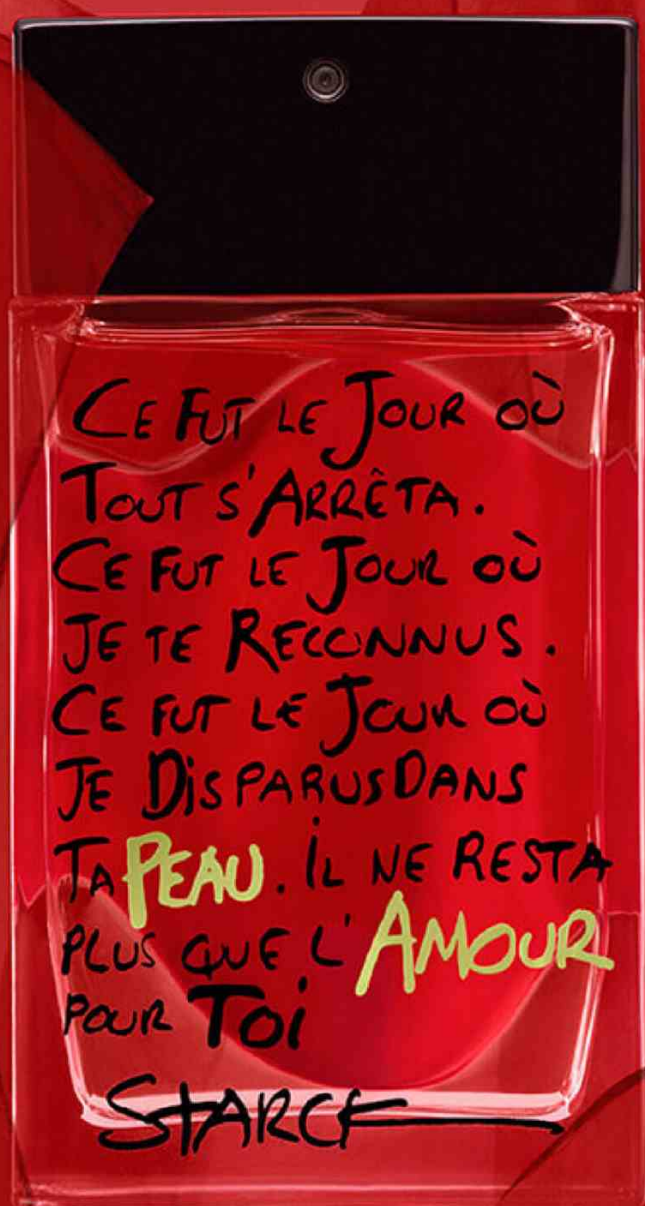 Ce Fut le Jour où
Tout s'Arrêta.
Ce Fut le Jour où
Je te Reconnus.
Ce Fut le Jour où
Je Disparus Dans
Ta PEAU. Il ne Resta
Plus que l'AMOUR
Pour Toi
STARCK